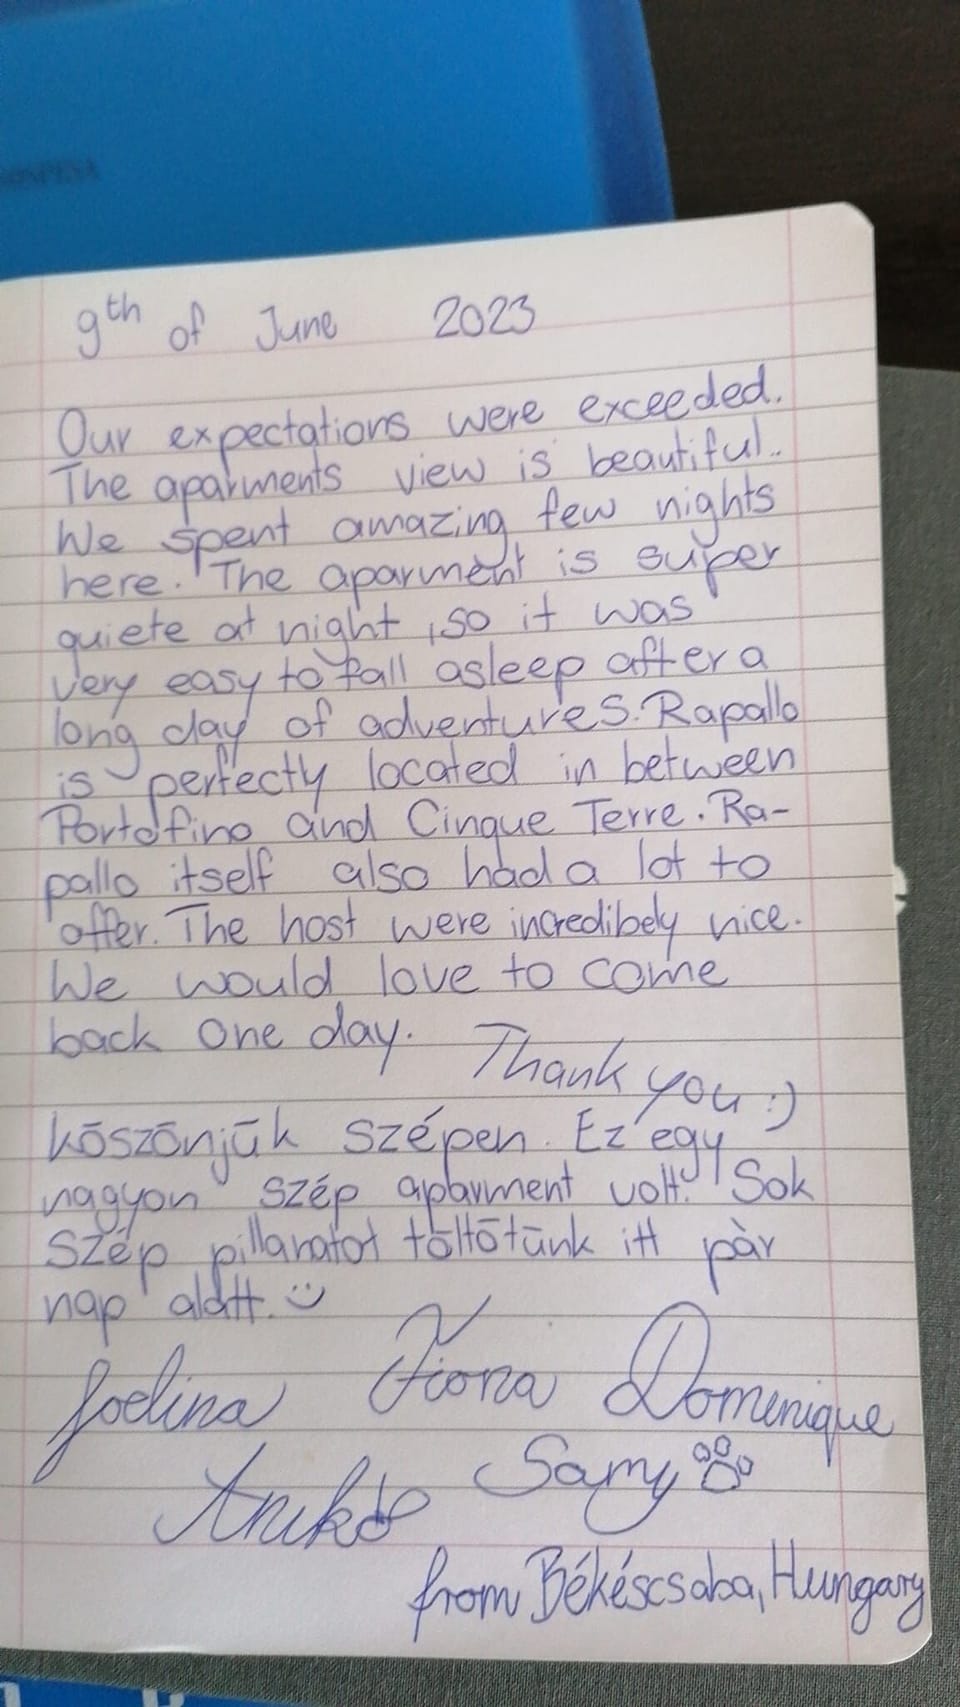 9th of June 2023
Our expectations were exceeded.
The aparments view is beautiful..
We spent amazing few nights
here. The aparment is super
quiete at night, so it was
very easy to fall asleep after a
long day of adventures. Rapallo
is perfectly located in between
Portofino and Cinque Terre. Ra-
pallo itself also had a lot to
offer. The host were incredibely nice.
We would love to come
back one day. Thank you :)
Kōszōnjūk szépen. Ez egy
nagyon szép aparment volt! Sok
szép pillanatot tōltōtūnk itt pàr
nap alatt. :)
Joelina Fiona Domenique
Anikó Samy
from Békéscsaba, Hungary